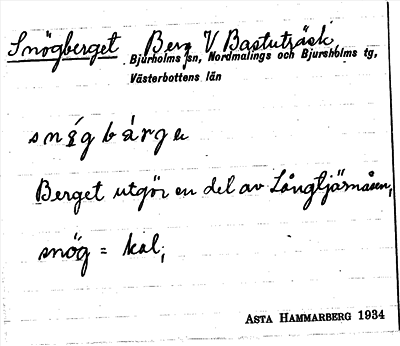 Snögberget Berg V Bastuträsk
Bjurholms sn, Nordmalings och Bjurholms tg,
Västerbottens län
snǿgbärge
Berget utgör en del av Långtjärnåsen,
snög = kal;
ASTA HAMMARBERG 1934